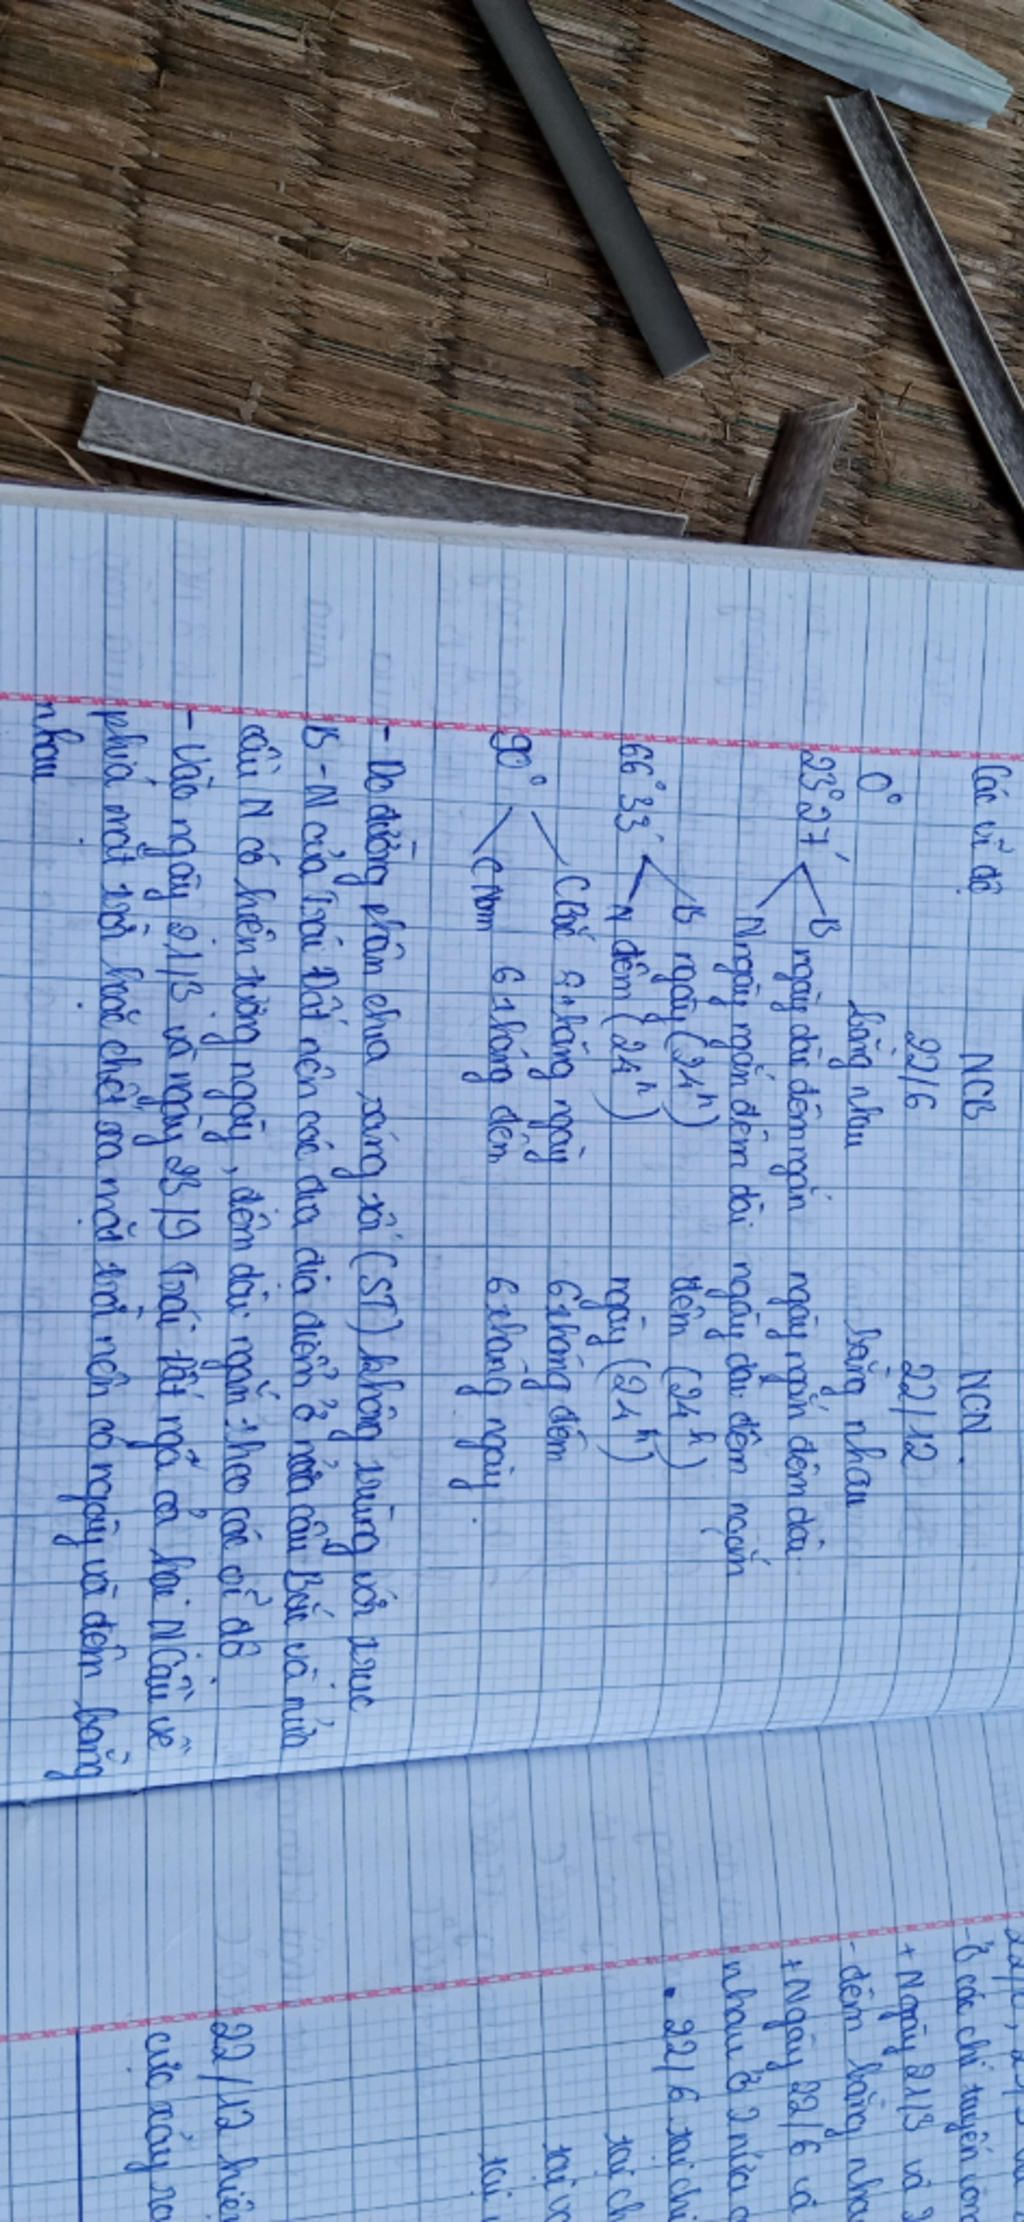 Các vĩ độ NCB NCN.
22/6 22/12
0° bằng nhau bằng nhau
23°27' B ngày dài đêm ngắn ngày ngắn đêm dài
N ngày ngắn đêm dài ngày dài đêm ngắn
66°33' B ngày (24h) đêm (24h)
N đêm (24h) ngày (24h)
90° C Bắc 6 tháng ngày 6 tháng đêm
C Nam 6 tháng đêm 6 tháng ngày.
- Do đường phân chia sáng tối (ST) không trùng với trục
B-N của Trái Đất nên các địa địa điểm ở nửa cầu Bắc và nửa
cầu N có hiện tượng ngày, đêm dài ngắn theo các vĩ độ
- Vào ngày 21/3 và ngày 23/9 Trái Đất ngả cả hai NCầu về
phía mặt trời hoặc chếch xa mặt trời nên có ngày và đêm bằng
nhau
- Ở các chí tuyến vòng
+ Ngày 21/3 và 2
- đêm bằng nha
+ Ngày 22/6 và
nhau ở 2 nửa c
• 22/6 tại chí
tại ch
tại vò
tại
22/12 hiện
cực xảy ra